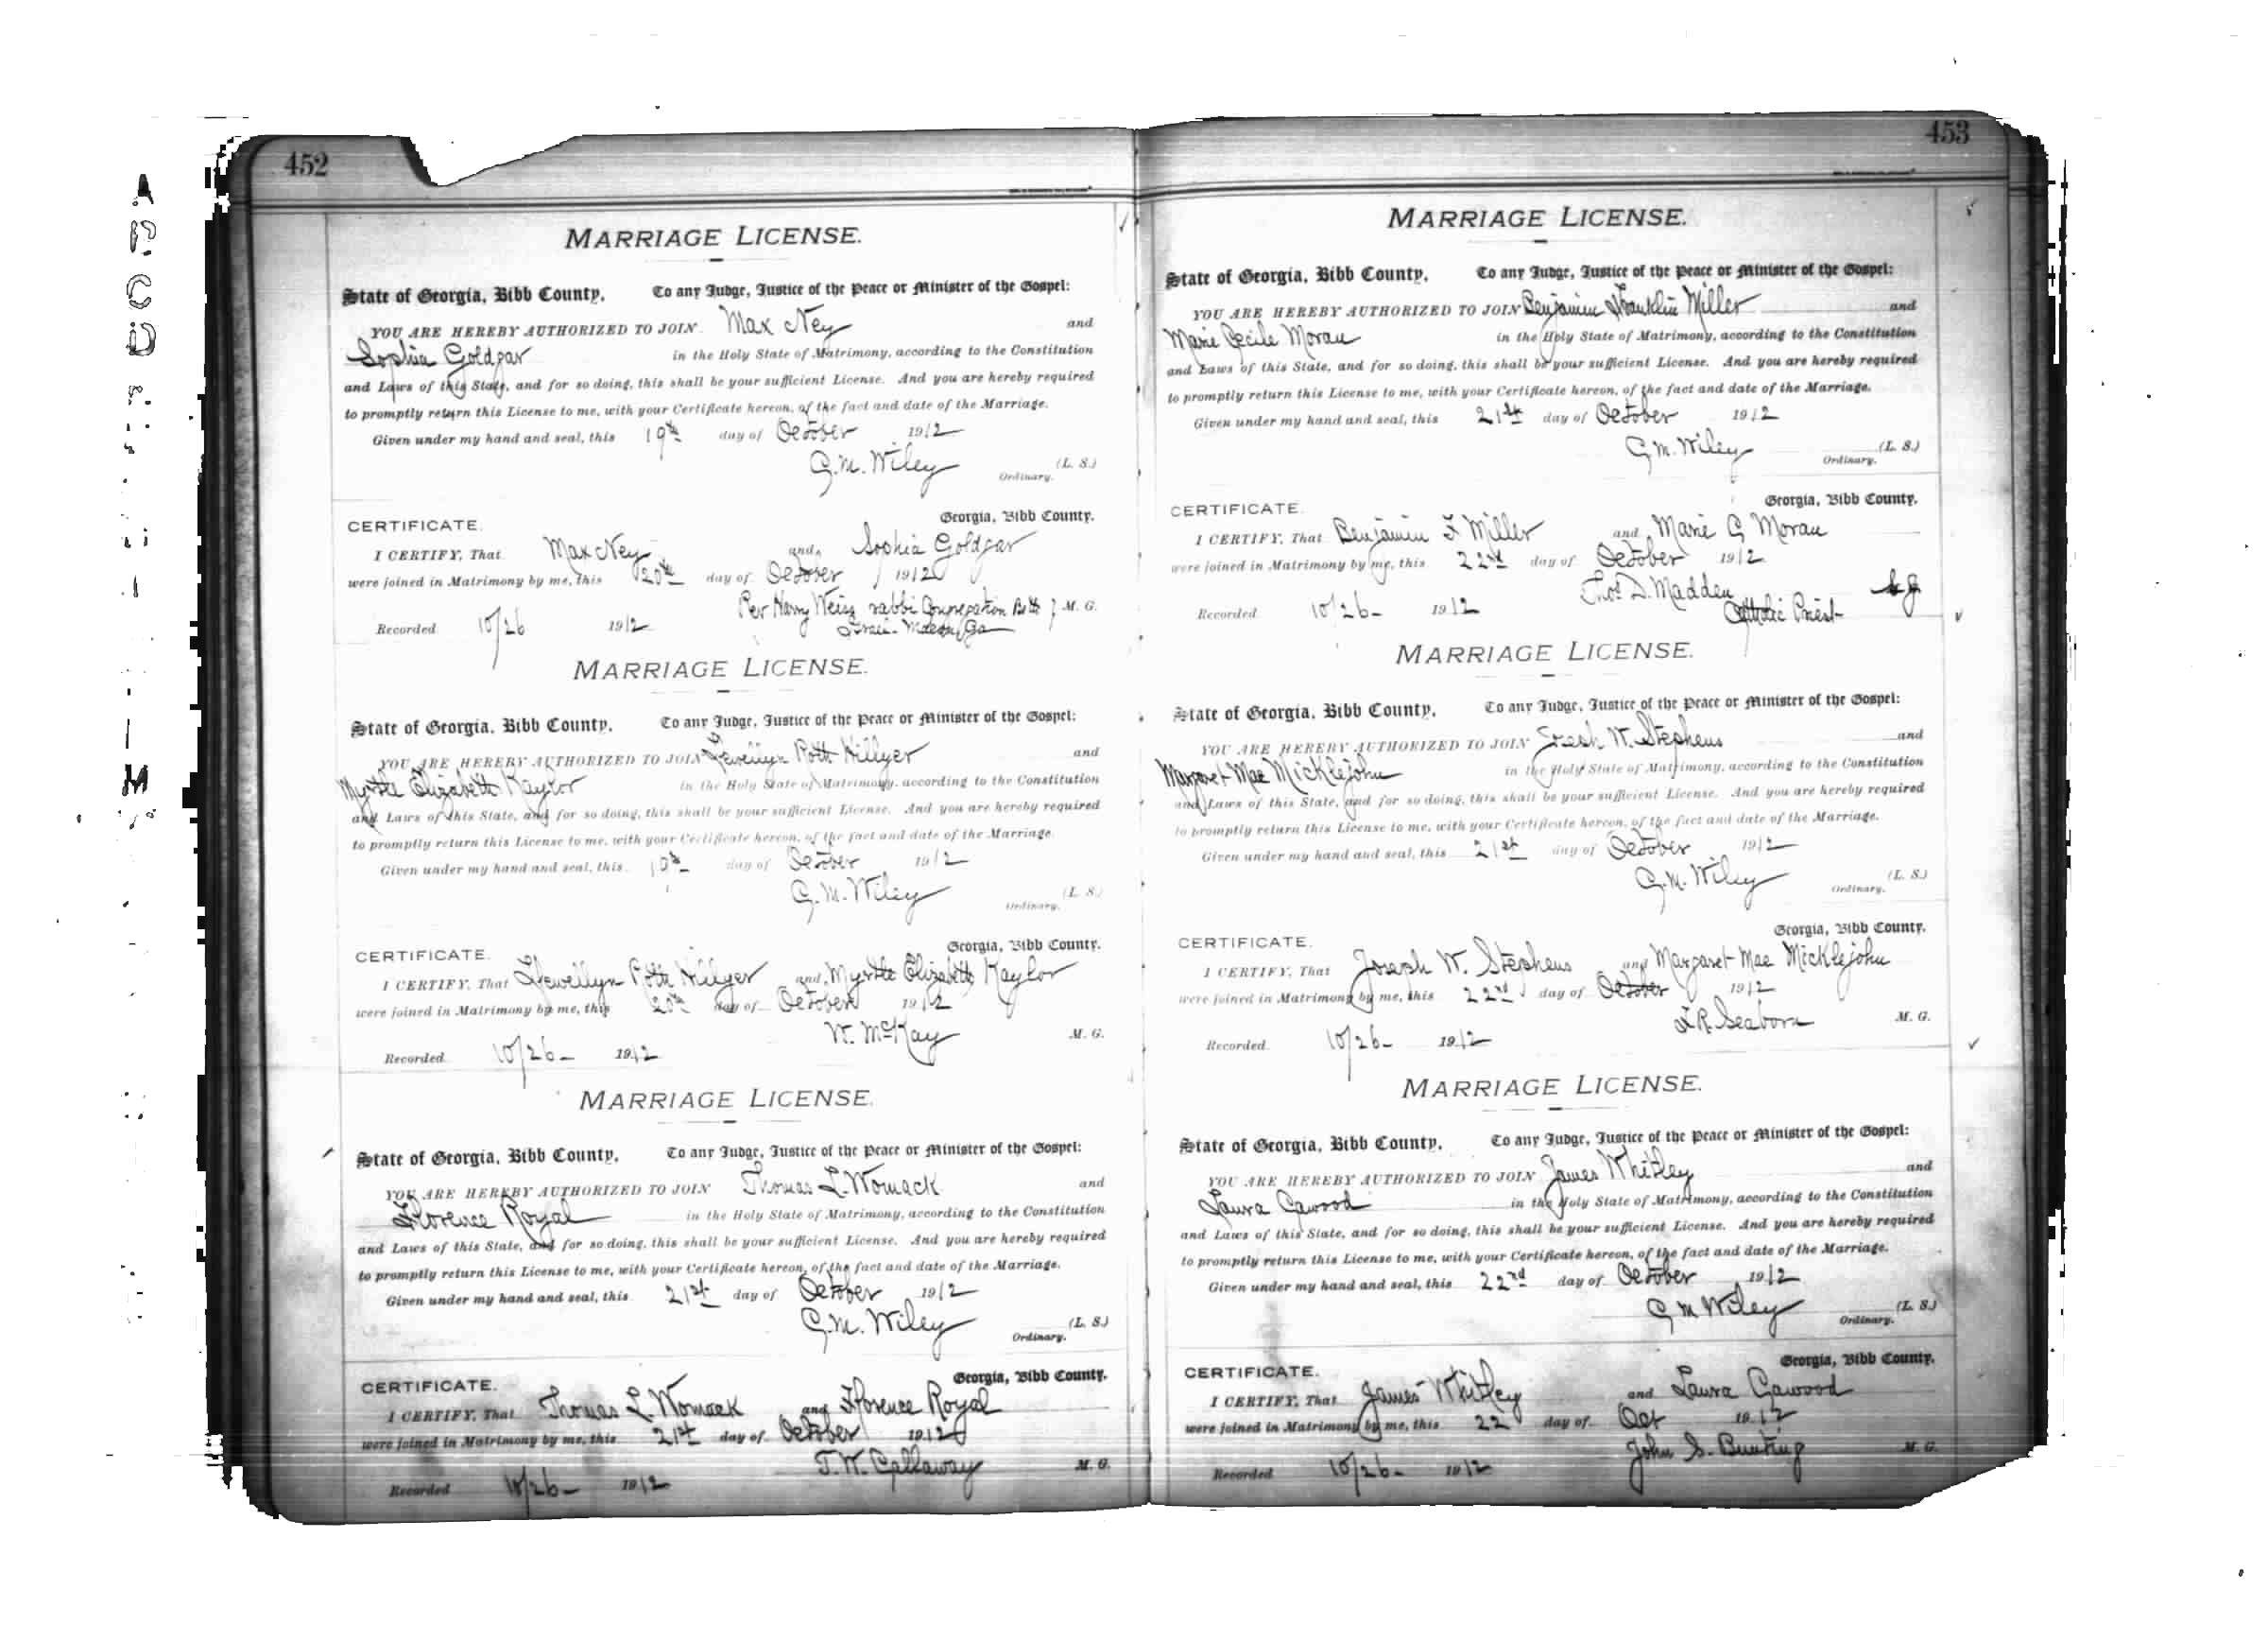 452
MARRIAGE LICENSE.
State of Georgia, Bibb County, To any Judge, Justice of the Peace or Minister of the Gospel:
YOU ARE HEREBY AUTHORIZED TO JOIN Max Ney and
Sophia Goldgar in the Holy State of Matrimony, according to the Constitution
and Laws of this State, and for so doing, this shall be your sufficient License. And you are hereby required
to promptly return this License to me, with your Certificate hereon, of the fact and date of the Marriage.
Given under my hand and seal, this 19th day of October 1912
G. M. Wiley (L. S.)
Ordinary.
Georgia, Bibb County.
CERTIFICATE.
I CERTIFY, That Max Ney and Sophia Goldgar
were joined in Matrimony by me, this 20th day of October 1912
Rev Harry Weiss rabbi Congregation Beth M. G.
Israel Macon, Ga
Recorded 10/26 1912
MARRIAGE LICENSE.
State of Georgia, Bibb County, To any Judge, Justice of the Peace or Minister of the Gospel:
YOU ARE HEREBY AUTHORIZED TO JOIN Llewellyn Potts Hillyer and
Myrtle Elizabeth Kaylor in the Holy State of Matrimony, according to the Constitution
and Laws of this State, and for so doing, this shall be your sufficient License. And you are hereby required
to promptly return this License to me, with your Certificate hereon, of the fact and date of the Marriage.
Given under my hand and seal, this 19th day of October 1912
G. M. Wiley (L. S.)
Ordinary.
Georgia, Bibb County.
CERTIFICATE.
I CERTIFY, That Llewellyn Potts Hillyer and Myrtle Elizabeth Kaylor
were joined in Matrimony by me, this 20th day of October 1912
W. McKay M. G.
Recorded 10/26- 1912
MARRIAGE LICENSE.
State of Georgia, Bibb County, To any Judge, Justice of the Peace or Minister of the Gospel:
YOU ARE HEREBY AUTHORIZED TO JOIN Thomas L. Womack and
Florence Royal in the Holy State of Matrimony, according to the Constitution
and Laws of this State, and for so doing, this shall be your sufficient License. And you are hereby required
to promptly return this License to me, with your Certificate hereon, of the fact and date of the Marriage.
Given under my hand and seal, this 21st day of October 1912
G. M. Wiley (L. S.)
Ordinary.
Georgia, Bibb County.
CERTIFICATE.
I CERTIFY, That Thomas L. Womack and Florence Royal
were joined in Matrimony by me, this 21st day of October 1912
T. W. Callaway M. G.
Recorded 10/26- 1912
453
MARRIAGE LICENSE.
State of Georgia, Bibb County, To any Judge, Justice of the Peace or Minister of the Gospel:
YOU ARE HEREBY AUTHORIZED TO JOIN Benjamin Franklin Miller and
Marie Cecile Moran in the Holy State of Matrimony, according to the Constitution
and Laws of this State, and for so doing, this shall be your sufficient License. And you are hereby required
to promptly return this License to me, with your Certificate hereon, of the fact and date of the Marriage.
Given under my hand and seal, this 21st day of October 1912
G. M. Wiley (L. S.)
Ordinary.
Georgia, Bibb County.
CERTIFICATE.
I CERTIFY, That Benjamin F Miller and Marie C Moran
were joined in Matrimony by me, this 22nd day of October 1912
Thos D. Madden
Catholic Priest
Recorded 10/26- 1912
MARRIAGE LICENSE.
State of Georgia, Bibb County, To any Judge, Justice of the Peace or Minister of the Gospel:
YOU ARE HEREBY AUTHORIZED TO JOIN Joseph W. Stephens and
Margaret Mae Micklejohn in the Holy State of Matrimony, according to the Constitution
and Laws of this State, and for so doing, this shall be your sufficient License. And you are hereby required
to promptly return this License to me, with your Certificate hereon, of the fact and date of the Marriage.
Given under my hand and seal, this 21st day of October 1912
G. M. Wiley (L. S.)
Ordinary.
Georgia, Bibb County.
CERTIFICATE.
I CERTIFY, That Joseph W. Stephens and Margaret Mae Micklejohn
were joined in Matrimony by me, this 22nd day of October 1912
F. R. Seaborn M. G.
Recorded 10/26- 1912
MARRIAGE LICENSE.
State of Georgia, Bibb County, To any Judge, Justice of the Peace or Minister of the Gospel:
YOU ARE HEREBY AUTHORIZED TO JOIN James Whitley and
Laura Cawood in the Holy State of Matrimony, according to the Constitution
and Laws of this State, and for so doing, this shall be your sufficient License. And you are hereby required
to promptly return this License to me, with your Certificate hereon, of the fact and date of the Marriage.
Given under my hand and seal, this 22nd day of October 1912
G M Wiley (L. S.)
Ordinary.
Georgia, Bibb County.
CERTIFICATE.
I CERTIFY, That James Whitley and Laura Cawood
were joined in Matrimony by me, this 22 day of Oct 1912
John S. Bunting M. G.
Recorded 10/26- 1912